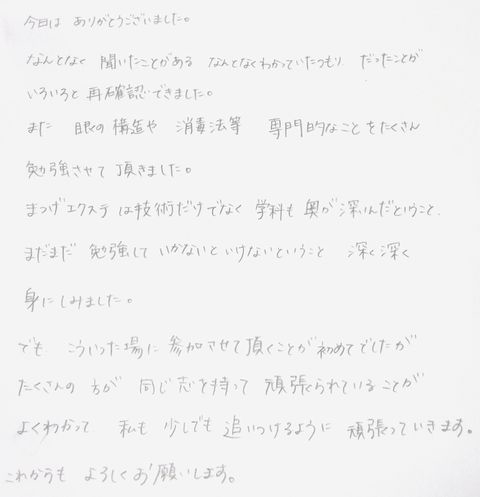 今日は ありがとうございました。
なんとなく 聞いたことがある なんとなくわかっていたつもり だったことが
いろいろと 再確認できました。
また 眼の構造や 消毒法等 専門的なことをたくさん
勉強させて 頂きました。
まつげエクステは技術だけでなく 学科も奥が深いんだということ、
まだまだ 勉強して いかないといけないということ 深く深く
身にしみました。
でも こういった場に 参加させて頂くことが初めてでしたが
たくさんの 方が 同じ志を持って 頑張られていることが
よくわかって 私も 少しでも 追いつけるように 頑張っていきます。
これからも よろしくお願いします。